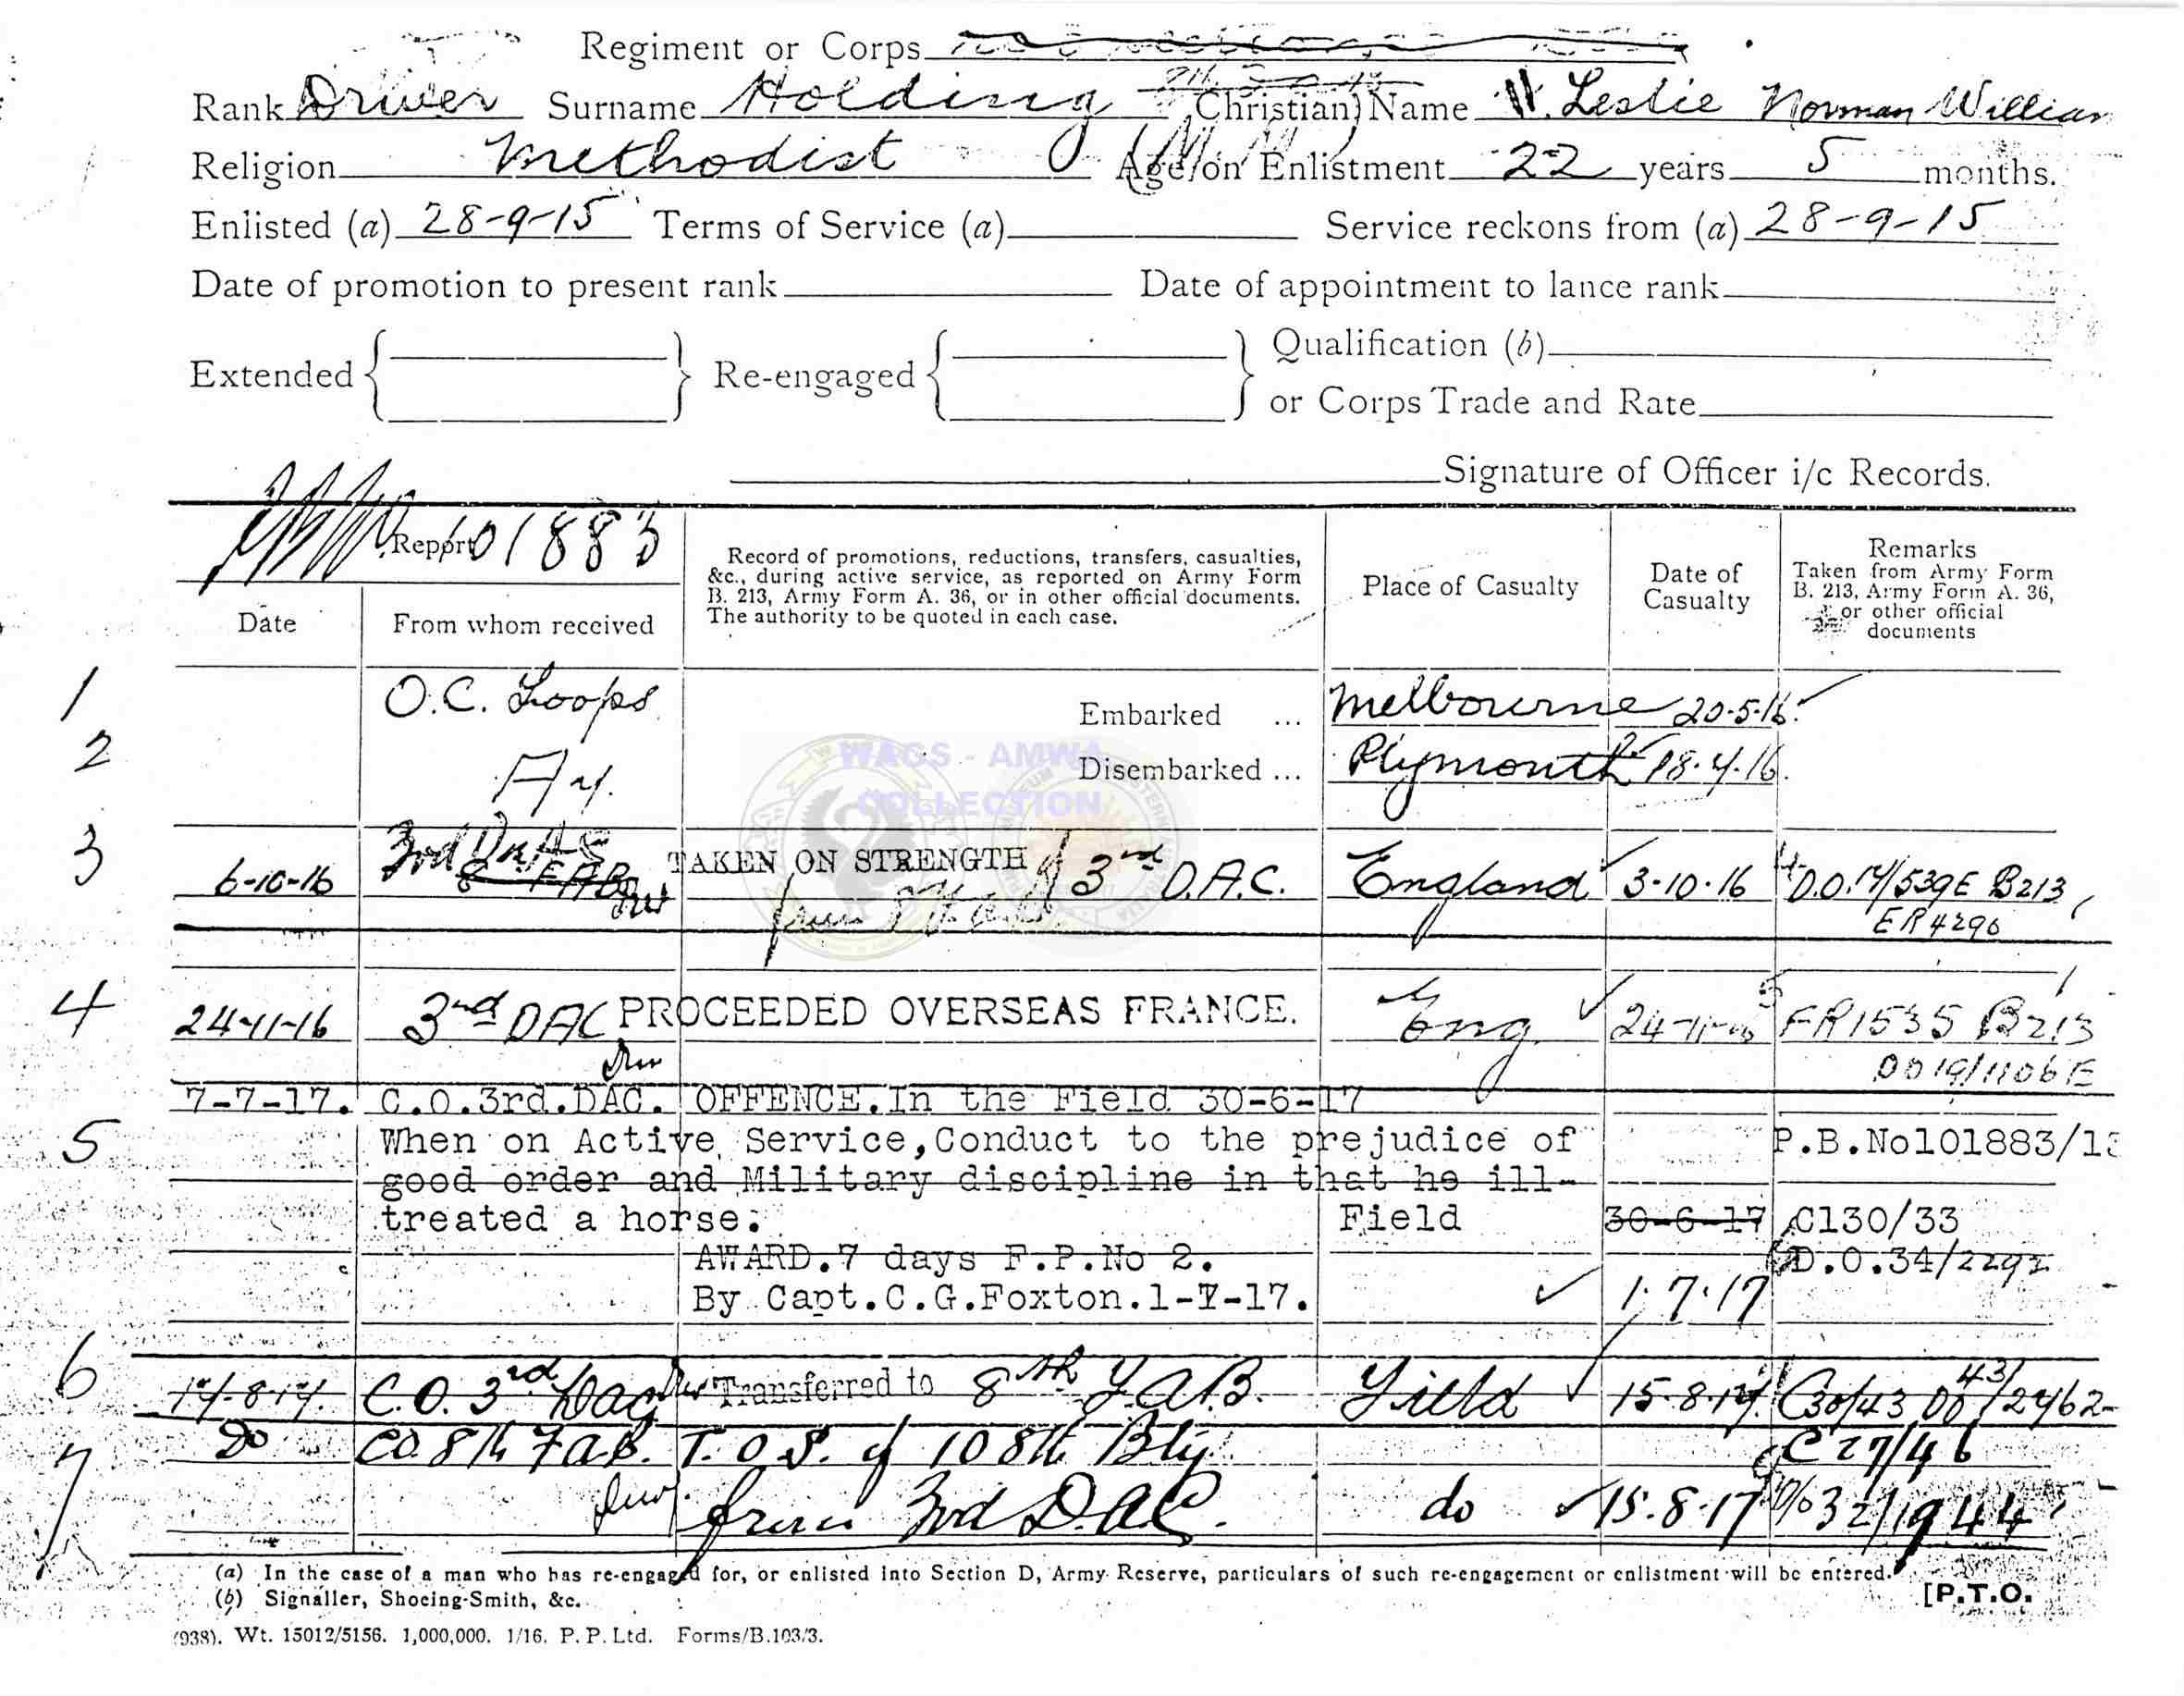 Regiment or Corps
Rank Driver Surname Holding (Christian) Name Leslie Norman William
Religion Methodist Age on Enlistment 22 years 5 months.
Enlisted (a) 28-9-15 Terms of Service (a) Service reckons from (a) 28-9-15
Date of promotion to present rank Date of appointment to lance rank
Extended { } Re-engaged { } Qualification (b)
or Corps Trade and Rate
Signature of Officer i/c Records.
Report 101883
Date From whom received
Record of promotions, reductions, transfers, casualties,
&c., during active service, as reported on Army Form
B. 213, Army Form A. 36, or in other official documents.
The authority to be quoted in each case.
Place of Casualty
Date of
Casualty
Remarks
Taken from Army Form
B. 213, Army Form A. 36,
or other official
documents
1 O.C. Troops Embarked ... Melbourne 20-5-16
2 Disembarked ... Plymouth 18.7.16.
WAGS - AMWA
COLLECTION
3 6-10-16 TAKEN ON STRENGTH of 3rd D.A.C. England 3-10-16 D.O.17/539E B213
from ER4290
4 24-11-16 3rd DAC PROCEEDED OVERSEAS FRANCE. Eng. 24-11-16 FR1535 B213
DO19/1106E
7-7-17. C.O.3rd.DAC. OFFENCE.In the Field 30-6-17
5 When on Active Service,Conduct to the prejudice of P.B.No101883/13
good order and Military discipline in that he ill-
treated a horse. Field 30-6-17 C130/33
AWARD.7 days F.P.No 2. D.O.34/2292
By Capt.C.G.Foxton.1-7-17. 1.7.17
6 17-8-17. C.O. 3rd Dac Transferred to 8th F.A.B. Field 15-8-17. C30/43 DO 43/2762
7 Do CO. 8th FAB. T.O.S. of 108th Bty. C27/46
from 3rd D.A.C. do 15.8.17 D/o 32/1944
(a) In the case of a man who has re-engaged for, or enlisted into Section D, Army Reserve, particulars of such re-engagement or enlistment will be entered.
(b) Signaller, Shoeing-Smith, &c.
[P.T.O.
(938). Wt. 15012/5156. 1,000,000. 1/16. P.P. Ltd. Forms/B.103/3.